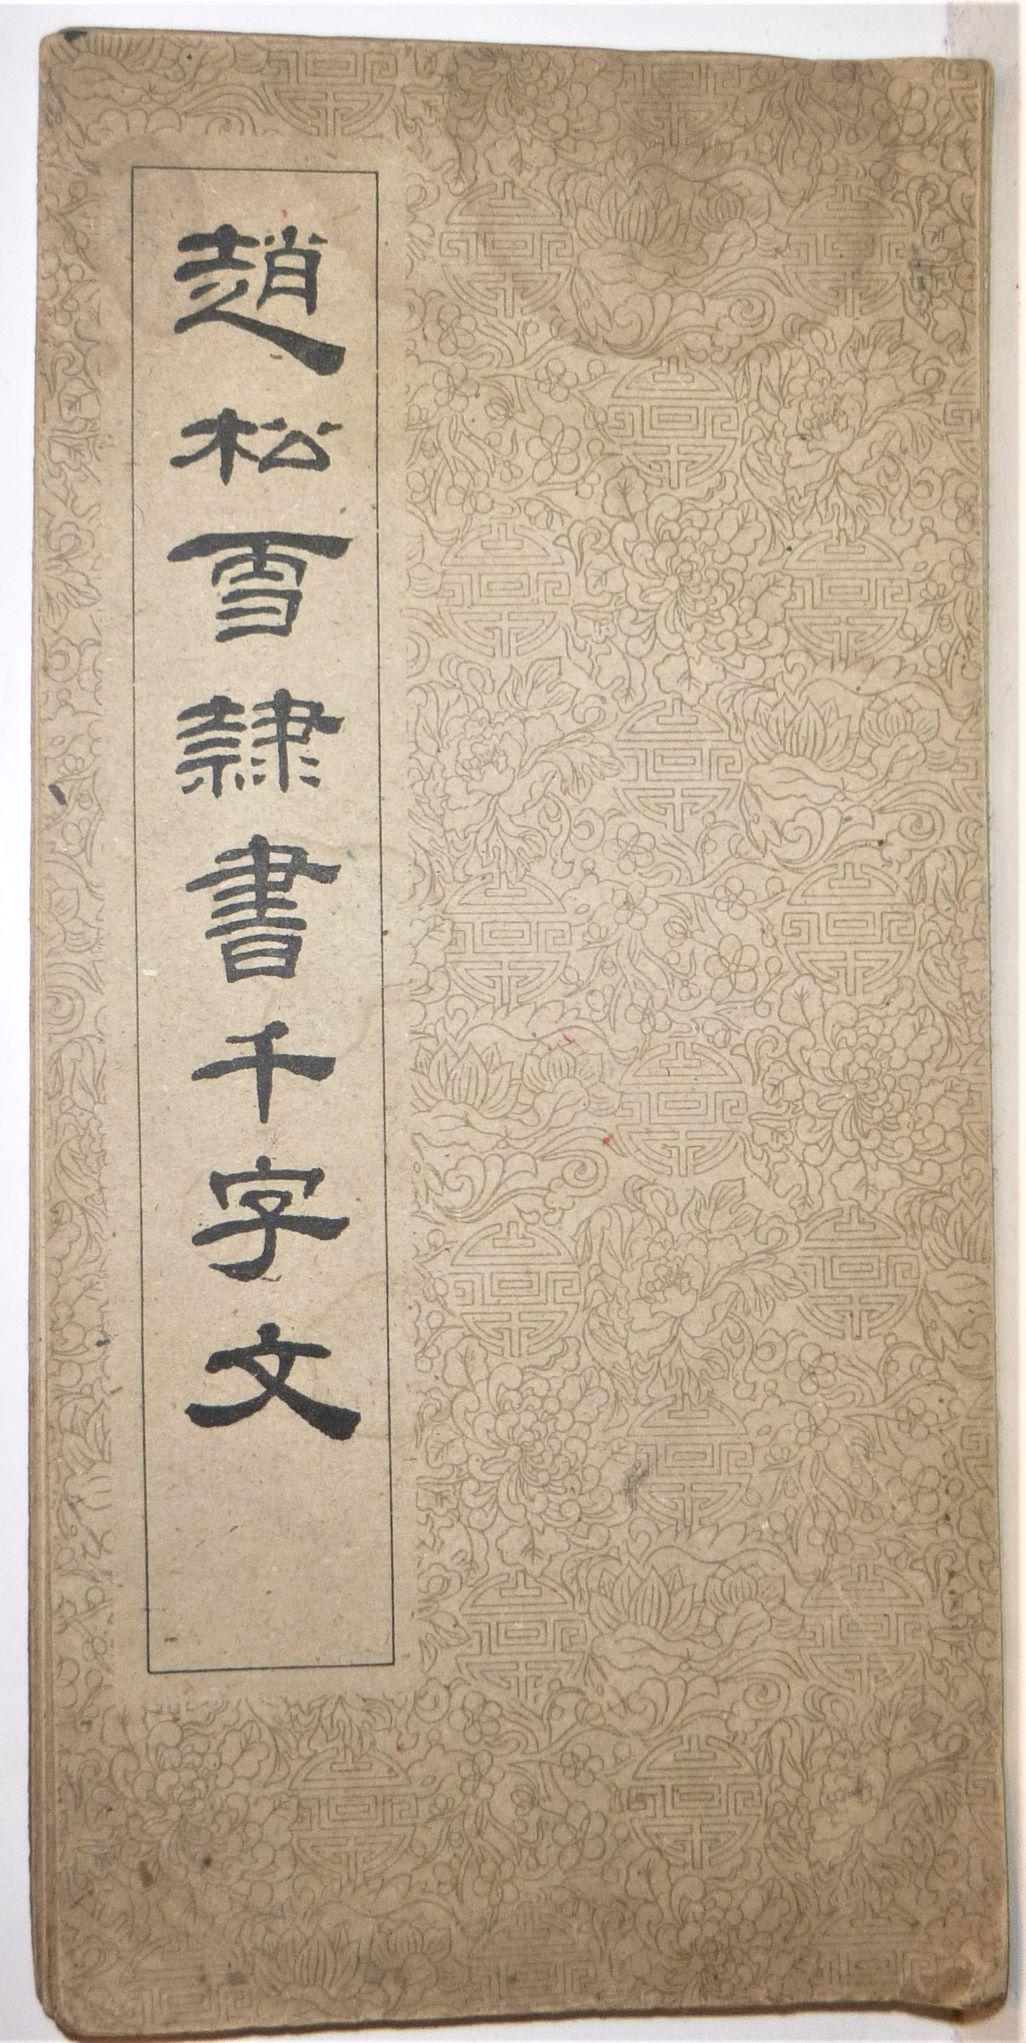 趙松雪隸書千字文